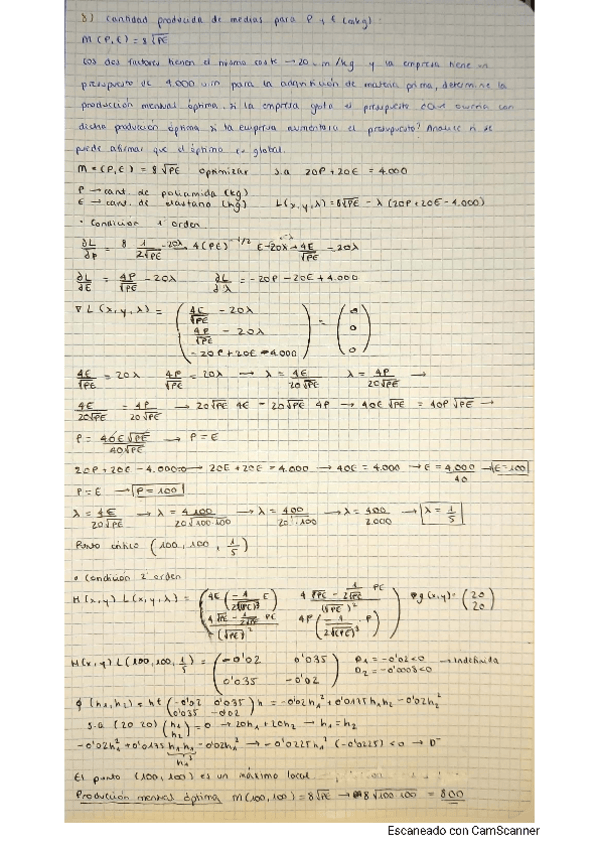 3) Cantidad producida de medias para P y E (en kg):
M(P,E) = 8√PE
Los dos factores tienen el mismo coste → 20 u.m/kg y la empresa tiene un
presupuesto de 4.000 u.m para la adquisición de materia prima, determine la
producción mensual óptima. si la empresa gasta el presupuesto con
dicha producción óptima si la empresa aumentara el presupuesto? Analice si se
puede afirmar que el óptimo es global.
M = (P,E) = 8√PE optimizar s.a 20P + 20E = 4.000
P → cant. de poliamida (kg)
E → cant. de elastano (kg) L(x,y,λ) = 8√PE - λ(20P+20E-4.000)
· Condición 1º orden
∂L/∂P = 8 1/2√PE - 20λ 4(PE)^-1/2 E - 20λ → 4E/√PE - 20λ
∂L/∂E = 4P/√PE - 20λ ∂L/∂λ = -20P - 20E + 4.000
∇L(x,y,λ) = (4E/√PE - 20λ, 4P/√PE - 20λ, -20P+20E=4.000) = (0, 0, 0)
4E/√PE = 20λ 4P/√PE = 20λ → λ = 4E/20√PE λ = 4P/20√PE →
4E/20√PE = 4P/20√PE → 20√PE 4E = 20√PE 4P → 40E√PE = 40P√PE →
P = 40E√PE/40√PE → P = E
20P + 20E - 4.000=0 → 20E + 20E = 4.000 → 40E = 4.000 → E = 4.000/40 → E = 100
P = E → P = 100
λ = 4E/20√PE → λ = 4·100/20√100·100 → λ = 400/20·100 → λ = 400/2.000 → λ = 1/5
Punto crítico (100, 100, 1/5)
· Condición 2º orden
H(x,y) L(x,y,λ) = ∇g(x,y) = (20, 20)
H(x,y) L(100,100,1/5) = (-0'02 0'035, 0'035 -0'02) D1 = -0'02 < 0 D2 = -0'0008 < 0 → Indefinida
ϕ(h1,h2) = ht (-0'02 0'035, 0'035 -0'02) h = -0'02h1² + 0'0175h1h2 - 0'02h2²
s.a (20 20) (h1, h2) = 0 → 20h1 + 20h2 → h1 = h2
-0'02h1² + 0'0175 h1h1 - 0'02h1² → -0'0225h1² (-0'0225) < 0 → D⁻
h1²
El punto (100,100) es un máximo local
Producción mensual óptima M(100,100) = 8√PE → 8√100·100 = 800
Escaneado con CamScanner